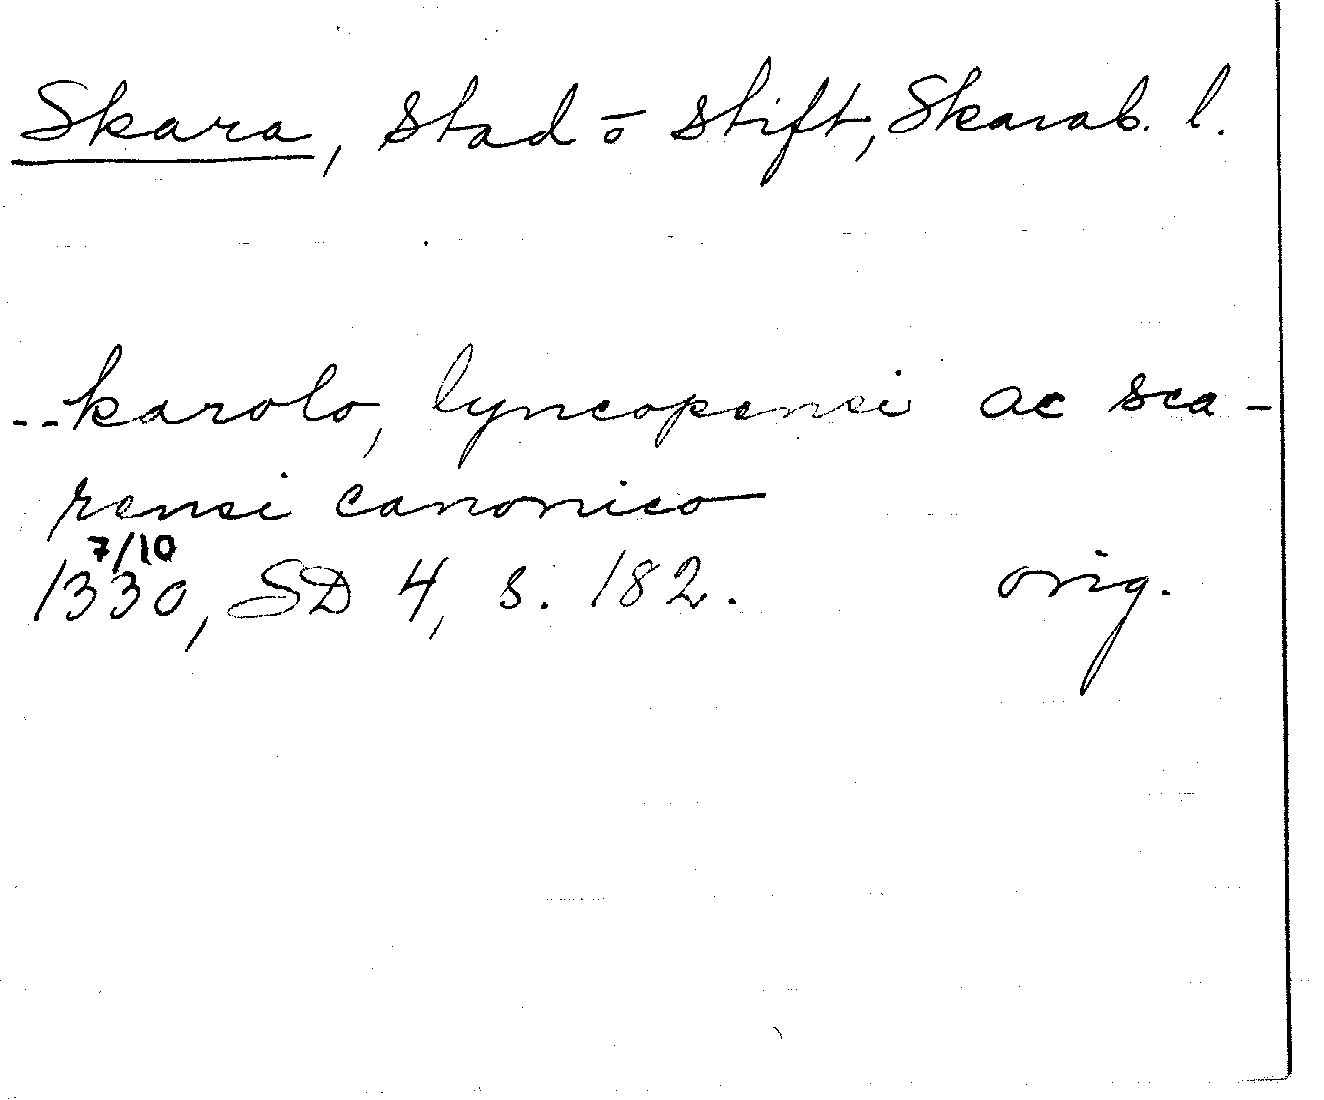 Skara, stad o stift, Skarab. l.
--karolo, lyncopensi ac sca-
rensi canonico
7/10
1330, SD 4, s. 182. orig.